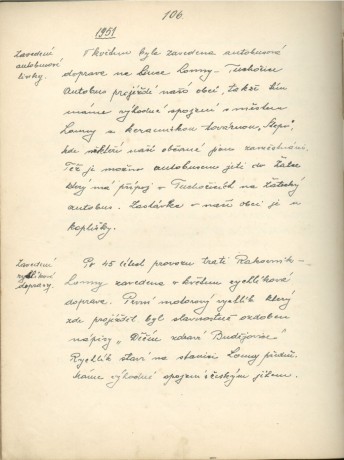 106.
1951
Zavedení
autobusové
linky.
V květnu byla zavedena autobusová
doprava na lince Louny - Tuchořice
Autobus projíždí naší obcí, takže tím
máme výhodné spojení s městem
Louny a keramickou továrnou "Stepo",
kde někteří naší občané jsou zaměstnáni.
Též je možno autobusem jeti do Žatce
který má přípoj v Tuchořicích na Žatecký
autobus. Zastávka v naší obci je u
kapličky.
Zavedení
rychlíkové
dopravy.
Po 45 letech provozu trati Rakovník -
Louny zavedena v květnu rychlíková
doprava. První motorový rychlík který
zde projížděl byl slavnostně ozdoben
nápisy "Děčín zdraví Budějovice"
Rychlík staví na stanici Louny předm.
Máme výhodné spojení s českým jihem.